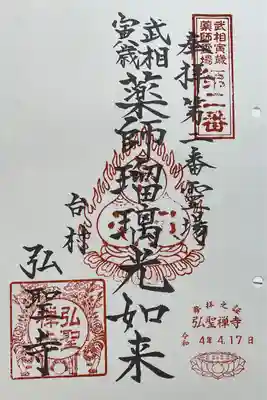 武相寅歳
薬師霊場
第二番
奉拝第二番霊場
武相
寅歳
薬師瑠璃光如来
台村
弘聖寺
弘聖
禅寺
弘聖禅寺
令和 4年 4.17日